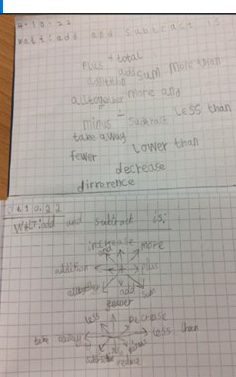 4.10.22
walt: add and subtract is
plus + total
adds sum more than
addition
altogether more and
minus - subtract less than
take away
fewer Lower than
decrease
dirrerence
4.10.22
Walt: add and subtract is:
increase
and more
addition + plus
altogether add sum
fewer
less decrease
take away less than
subtract minus
reduce